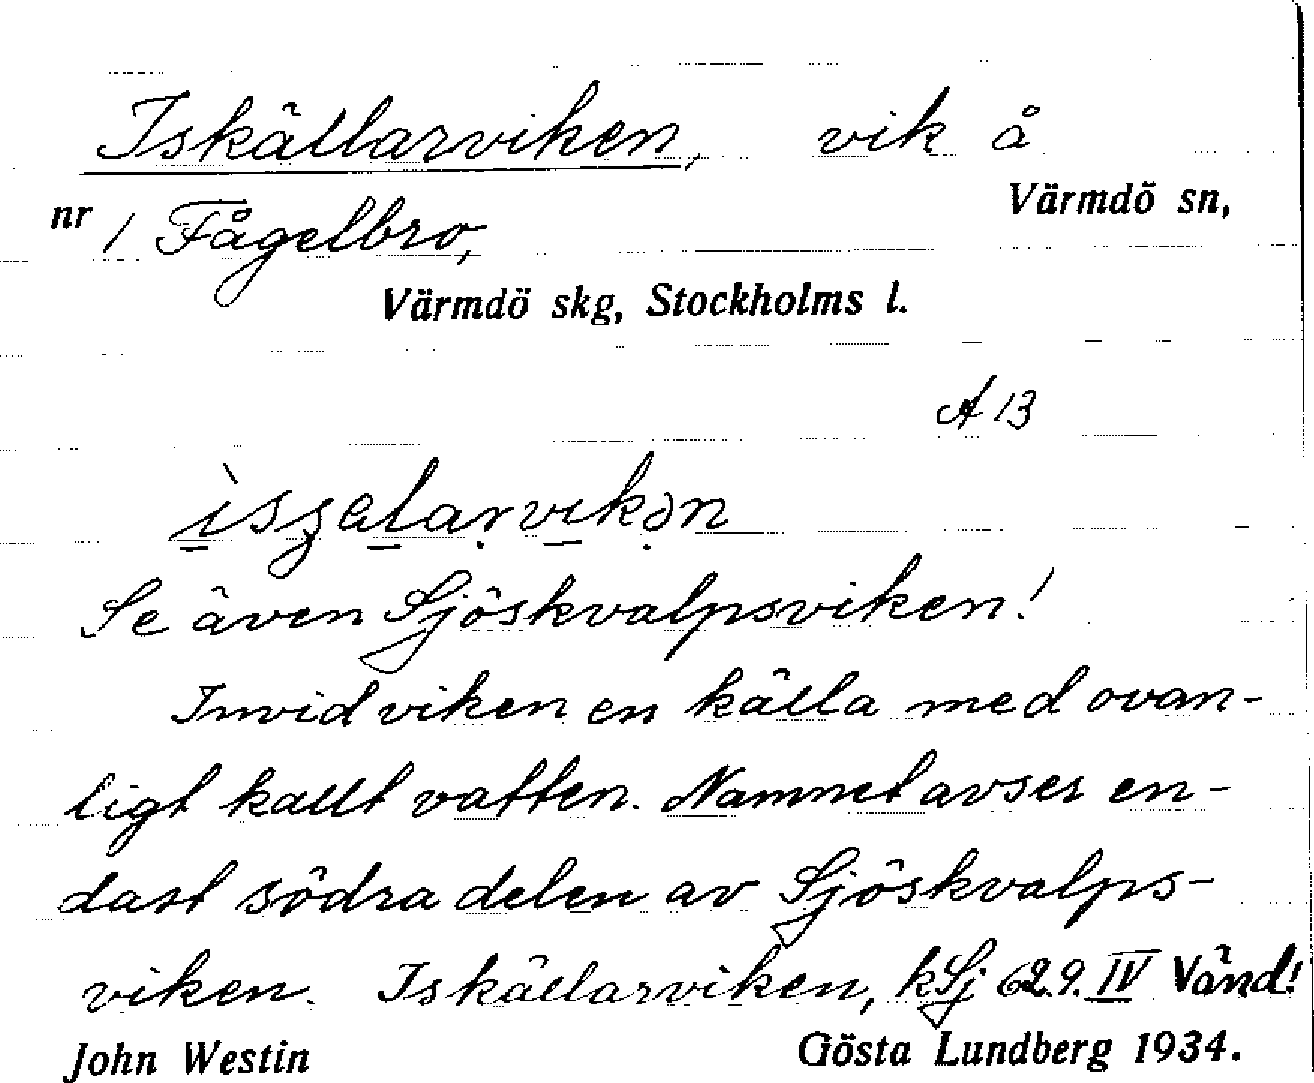 Iskällarviken, vik å
Värmdö sn,
nr 1 Fågelbro,
Värmdö skg, Stockholms l.
A 13
Se även Sjöskvalpsviken!
Invid viken en källa med ovan-
ligt kallt vatten. Namnet avser en-
dast södra delen av Sjöskvalps-
viken. Iskällarviken, kSj 62.9. IV Vänd!
John Westin Gösta Lundberg 1934.